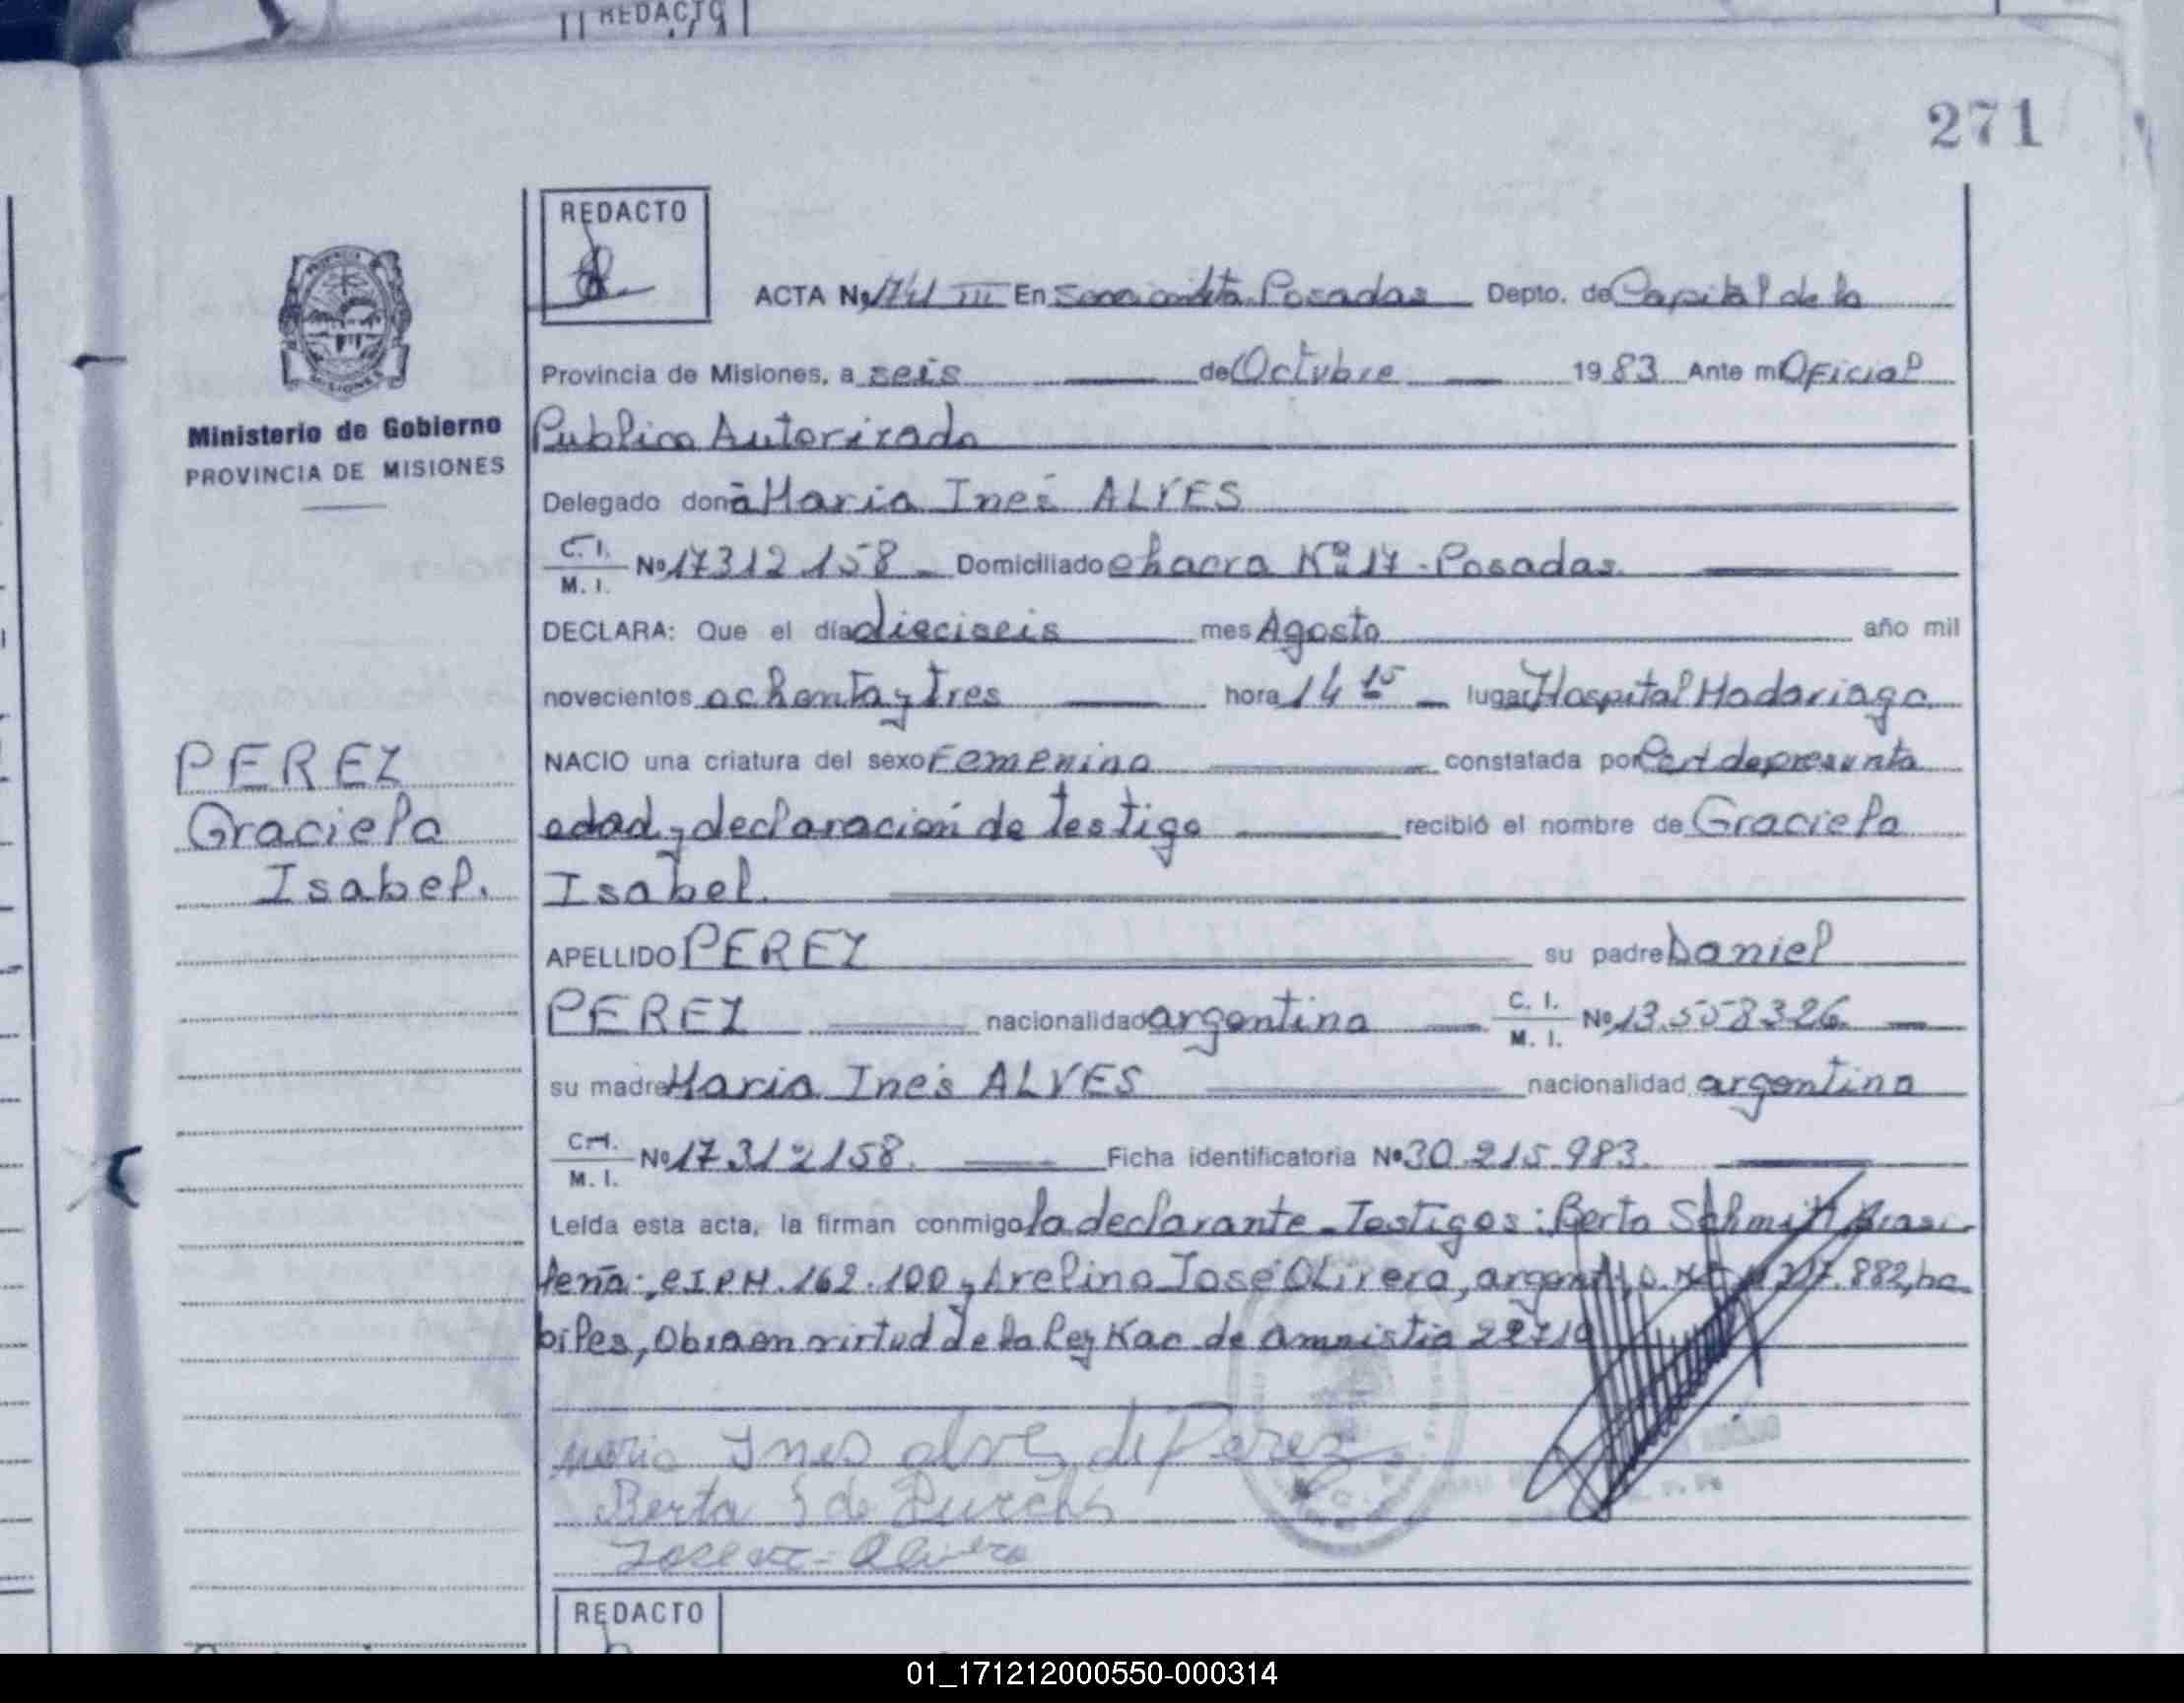 REDACTO
271
REDACTO
ACTA No 1741 III En Posadas Depto. de Capital de la
Provincia de Misiones, a seis de Octubre 1983 Ante mi Oficial
Ministerio de Gobierno
Publico Autorizado
PROVINCIA DE MISIONES
Delegado doña Maria Ines ALVES
C. I. M. I. No 17312 158 Domiciliado chacra No 17 - Posadas.
DECLARA: Que el día dieciseis mes Agosto año mil
novecientos ochenta y tres hora 14 15 lugar Hospital Madariaga
PEREZ
NACIO una criatura del sexo Femenino constatada por Cert de presunta
Graciela
edad y declaración de testigo recibió el nombre de Graciela
Isabel.
Isabel.
APELLIDO PEREZ su padre Daniel
PEREZ nacionalidad argentina C. I. M. I. No 13.558326
su madre Maria Inés ALVES nacionalidad argentina
C. I. M. I. No 17312158. Ficha identificatoria No 30.215.983.
Leída esta acta, la firman conmigo la declarante - Testigos: Berta Schmitt Brasi
leña; C I P M. 162.100 y Avelino José Olivera, 882, ha
biles, Obra en virtud de la Ley Nac. de amnistia 22710
Maria Ines alves de Perez
Berta S de
Jose Olivera
REDACTO
01_171212000550-000314